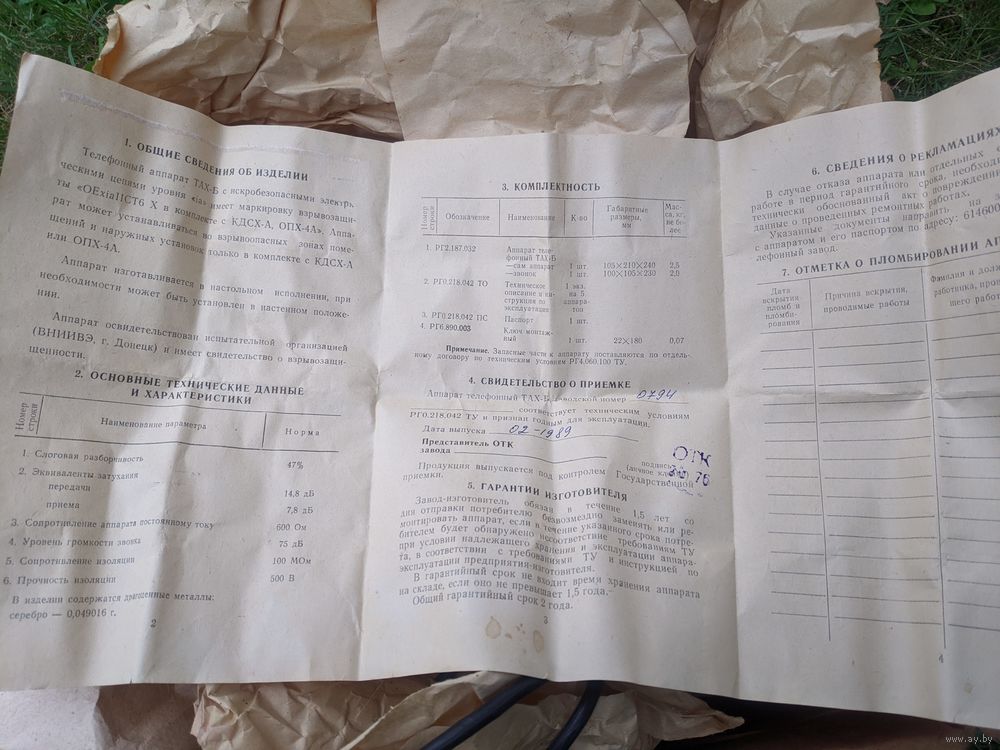 1. ОБЩИЕ СВЕДЕНИЯ ОБ ИЗДЕЛИИ
Телефонный аппарат ТАХ-Б с искробезопасными электри-
ческими цепями уровня «ia» имеет маркировку взрывозащи-
ты «ОЕхiaIIСТ6 Х в комплекте с КДСХ-А, ОПХ-4А». Аппа-
рат может устанавливаться во взрывоопасных зонах поме-
щений и наружных установок только в комплекте с КДСХ-А
или ОПХ-4А.
Аппарат изготавливается в настольном исполнении, при
необходимости может быть установлен в настенном положе-
нии.
Аппарат освидетельствован испытательной организацией
(ВНИИВЭ, г. Донецк) и имеет свидетельство о взрывозащи-
щенности.
2. ОСНОВНЫЕ ТЕХНИЧЕСКИЕ ДАННЫЕ
И ХАРАКТЕРИСТИКИ
Номер строки Наименование параметра Норма
1. Слоговая разборчивость 47%
2. Эквиваленты затухания
передачи 14,8 дБ
приема 7,8 дБ
3. Сопротивление аппарата постоянному току 600 Ом
4. Уровень громкости звонка 75 дБ
5. Сопротивление изоляции 100 МОм
6. Прочность изоляции 500 В
В изделии содержатся драгоценные металлы:
серебро — 0,049016 г.
2
3. КОМПЛЕКТНОСТЬ
Номер строки Обозначение Наименование К-во Габаритные размеры, мм Мас-са, кг, не бо-лее
1. РГ2.187.032 Аппарат теле-
фонный ТАХ-Б
—сам аппарат 1 шт. 105×210×240 2,5
—звонок 1 шт. 100×105×230 2,0
2. РГ0.218.042 ТО Техническое 1 экз.
описание и ин- на 5
струкция по аппара-
эксплуатации тов
3. РГ0.218.042 ПС Паспорт 1 шт.
4. РГ6.890.003 Ключ монтаж-
ный 1 шт. 22×180 0,07
Примечание. Запасные части к аппарату поставляются по отдель-
ному договору по техническим условиям РГ4.060.100 ТУ.
4. СВИДЕТЕЛЬСТВО О ПРИЕМКЕ
Аппарат телефонный ТАХ-Б, заводской номер 0794
соответствует техническим условиям
РГ0.218.042 ТУ и признан годным для эксплуатации.
Дата выпуска 02-1989
Представитель ОТК
завода
подпись
(личное клеймо)
ОТК
76
Продукция выпускается под контролем Государственной
приемки.
5. ГАРАНТИИ ИЗГОТОВИТЕЛЯ
Завод-изготовитель обязан в течение 1,5 лет со
дня отправки потребителю безвозмездно заменять или ре-
монтировать аппарат, если в течение указанного срока потре-
бителем будет обнаружено несоответствие требованиям ТУ
при условии надлежащего хранения и эксплуатации аппара-
та, в соответствии с требованиями ТУ и инструкцией по
эксплуатации предприятия-изготовителя.
В гарантийный срок не входит время хранения аппарата
на складе, если оно не превышает 1,5 года.
Общий гарантийный срок 2 года.
3
6. СВЕДЕНИЯ О РЕКЛАМАЦИЯХ
В случае отказа аппарата или отдельных
работе в период гарантийного срока, необходи
технически обоснованный акт о повреждении
данные о проведенных ремонтных работах.
Указанные документы направить, на
с аппаратом и его паспортом по адресу: 614600
лефонный завод.
7. ОТМЕТКА О ПЛОМБИРОВАНИИ АП
Дата вскрытия пломб и пломби-рования Причина вскрытия, проводимые работы Фамилия и долж работника, про щего работ
4
www.ay.by